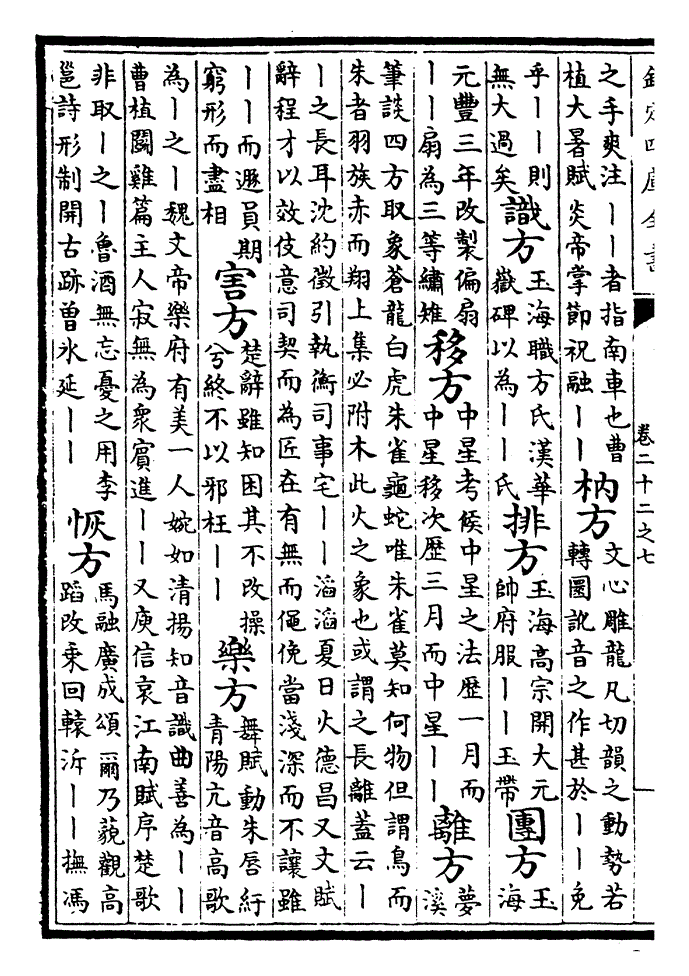 欽定四庫全書
卷二十二之七
之手爽注｜｜者指南車也曹
植大暑賦炎帝掌節祝融｜｜
枘方
文心雕龍凡切韻之動勢若
轉圜訛音之作甚於｜｜免
乎｜｜則
無大過矣
識方
玉海職方氏漢華
嶽碑以為｜｜氏
排方
玉海高宗開大元
帥府服｜｜玉帶
團方
玉
海
元豐三年改製偏扇
｜｜扇為三等繡雉
移方
中星考候中星之法歷一月而
中星移次歷三月而中星｜｜
離方
夢
溪
筆談四方取象蒼龍白虎朱雀龜蛇唯朱雀莫知何物但謂鳥而
朱者羽族赤而翔上集必附木此火之象也或謂之長離蓋云｜
｜之長耳沈約徵引執衡司事宅｜｜滔滔夏日火德昌又文賦
辭程才以效伎意司契而為匠在有無而僶俛當淺深而不讓雖
｜｜而遯員期
窮形而盡相
害方
楚辭雖知困其不改操
兮終不以邪枉｜｜
樂方
舞賦動朱唇紆
青陽亢音高歌
為｜之｜魏文帝樂府有美一人婉如清揚知音識曲善為｜｜
曹植鬭雞篇主人寂無為衆賓進｜｜又庾信哀江南賦序楚歌
非取｜之｜魯酒無忘憂之用李
邕詩形制開古跡曾氷延｜｜
恢方
馬融廣成頌爾乃藐觀高
蹈改乗回轅泝｜｜撫馮